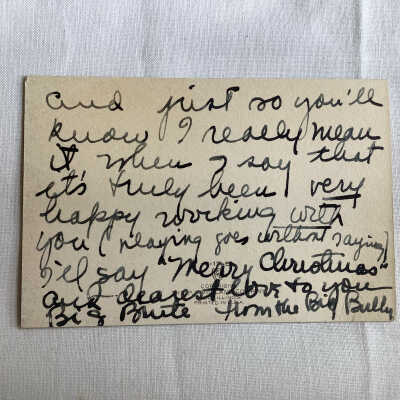 and just so you'll
know I really mean
it when I say that
it's truly been very
happy working with
you (playing goes without saying)
I'll say "Merry Christmas"
and dearest love to you
Big Brute from the Big Bully
PRINTED IN